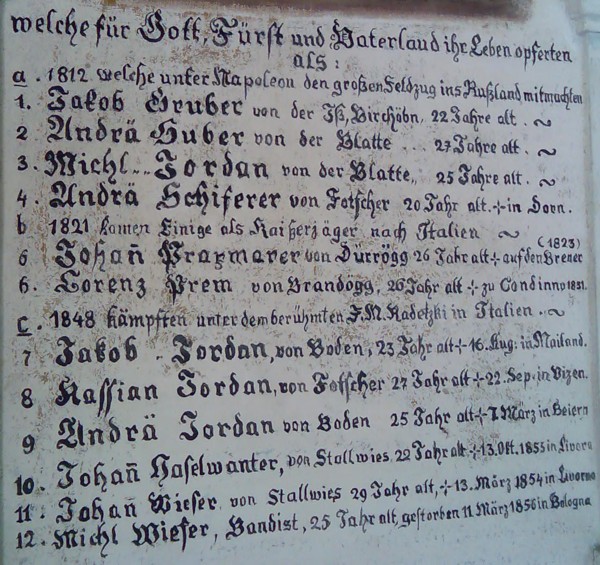 welche für Gott, Fürst und Vaterland ihr Leben opferten
als:
a. 1812 welche unter Napoleon den großen Feldzug ins Rußland mitmachten
1. Jakob Gruber von der Iß, Birchöbn, 22 Jahre alt. ~
2 Andrä Huber von der Blatte ... 27 Jahre alt. ~
3. Michl .. Jordan von der Blatte,, 25 Jahre alt. ~
4. Andrä Schiferer von Fotscher 20 Jahr alt. + in Dorn.
b 1821 kamen Einige als Kaißerjäger nach Italien ~ (1823)
5 Johañ Praxmarer von Dürrögg 26 Jahr alt + auf den Brener
6. Lorenz Prem von Brandögg, 26 Jahr alt + zu Condinno 1831.
c. 1848 kämpften unter dem berühmten F.M. Radetzki in Italien. ~
7 Jakob . Jordan, von Boden, 23 Jahr alt + 16. Aug. in Mailand.
8 Kassian Jordan, von Fotscher 27 Jahr alt + 22. Sep. in Vizen.
9 Andrä Jordan von Boden 25 Jahr alt + 7. März in Beiern
10. Johañ Haselwanter, von Stallwies 22 Jahr alt + 13. Okt. 1853 in Livorn
11. Johañ Wieser von Stallwies 29 Jahr alt, + 13. März 1854 in Livorno
12. Michl Wieser, Bandist, 25 Jahr alt, gestorben 11 März 1856 in Bologna